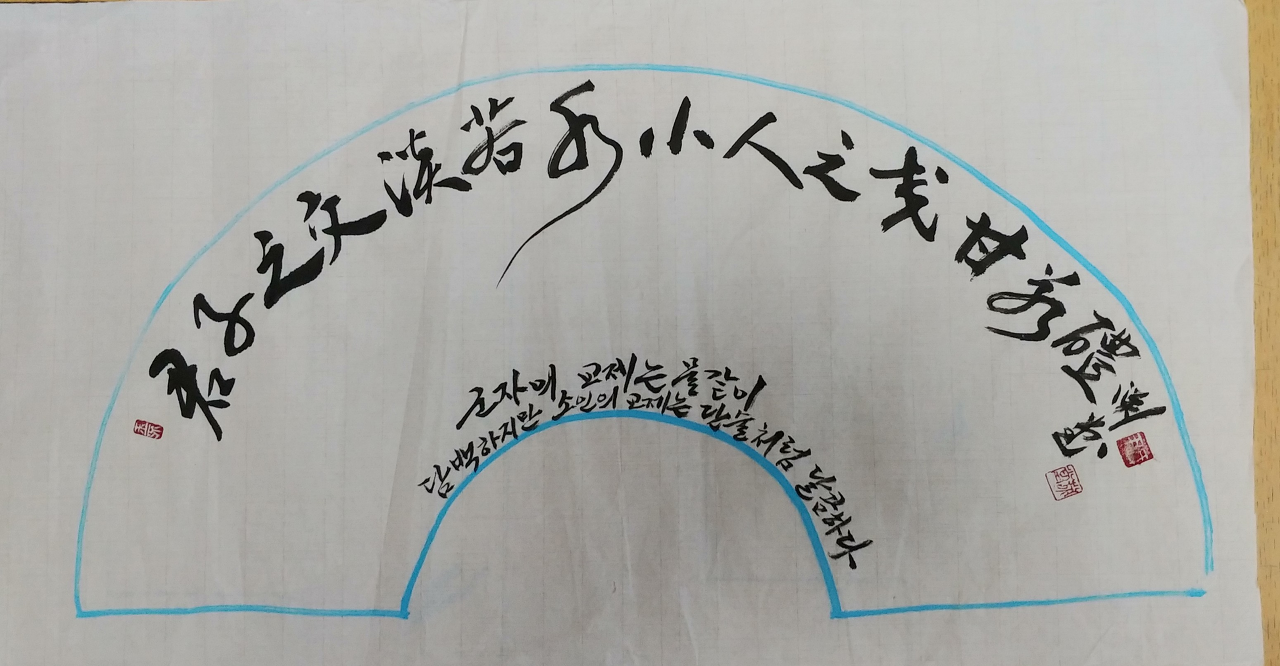 君子之交淡若水小人之交甘若醴
군자의 교제는 물같이
담백하지만 소인의 교제는 단술처럼 달콤하다